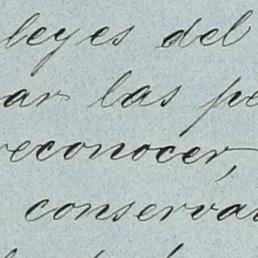 leyes del
ar las pe
reconocer,
conservar